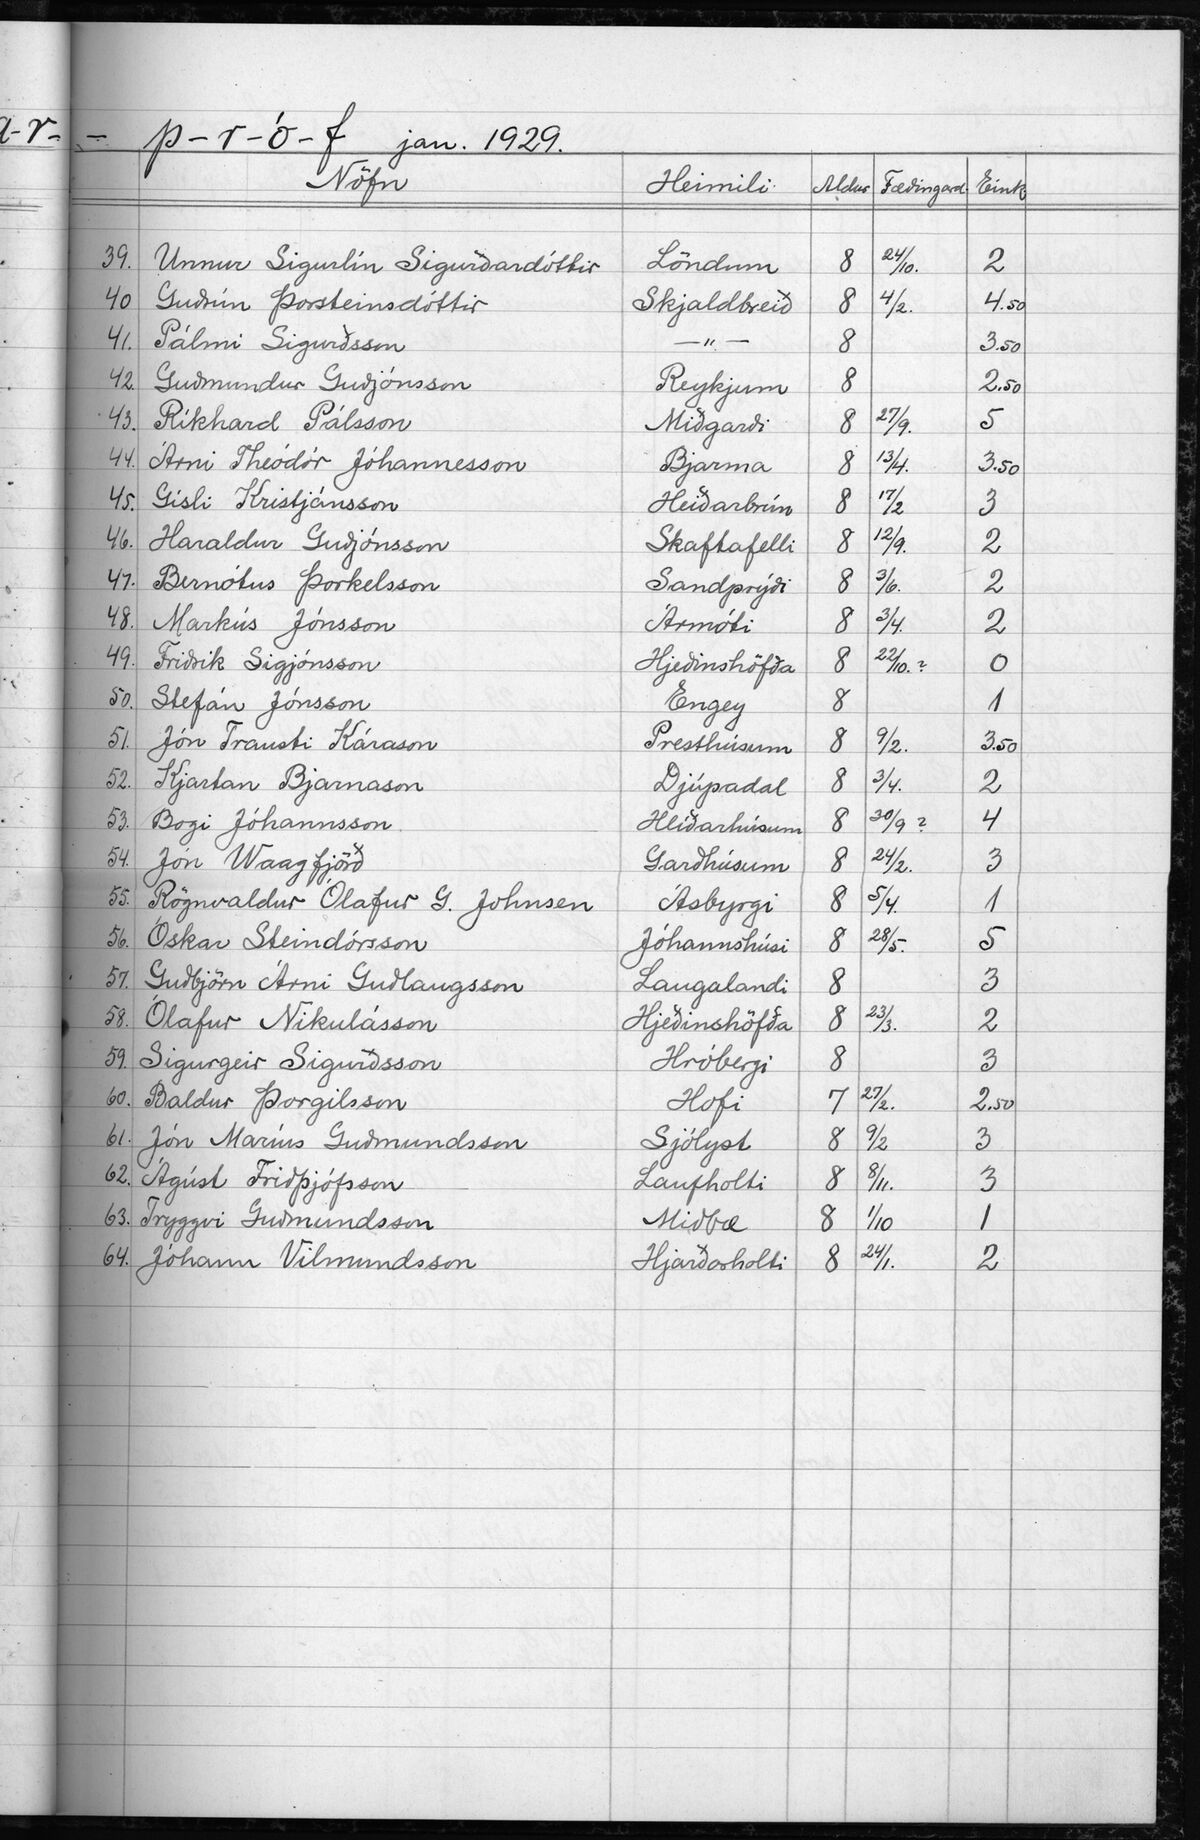 a-r- - p-r-ó-f jan. 1929.
Nöfn Heimili Aldur Fæðingard. Eink
39. Unnur Sigurlín Sigurðardóttir Löndum 8 24/10. 2
40 Guðrún Þorsteinsdóttir Skjaldbreið 8 4/2. 4.50
41. Pálmi Sigurðsson —"— 8 3.50
42. Guðmundur Guðjónsson Reykjum 8 2.50
43. Ríkhard Pálsson Miðgarði 8 27/9. 5
44. Árni Theódór Jóhannesson Bjarma 8 13/4. 3.50
45. Gísli Kristjánsson Heiðarbrún 8 17/2 3
46. Haraldur Guðjónsson Skaftafelli 8 12/9. 2
47. Bernótus Þorkelsson Sandprýði 8 3/6. 2
48. Markús Jónsson Ármóti 8 3/4. 2
49. Friðrik Sigjónsson Hjeðinshöfða 8 22/10. ? 0
50. Stefán Jónsson Engey 8 1
51. Jón Trausti Kárason Presthúsum 8 9/2. 3.50
52. Kjartan Bjarnason Djúpadal 8 3/4. 2
53. Bogi Jóhannsson Heiðarhúsum 8 30/9 ? 4
54. Jón Waagfjörð Garðhúsum 8 24/2. 3
55. Rögnvaldur Ólafur G. Johnsen Ásbyrgi 8 5/4. 1
56. Óskar Steindórsson Jóhannshúsi 8 28/5. 5
57. Guðbjörn Árni Guðlaugsson Laugalandi 8 3
58. Ólafur Nikulásson Hjeðinshöfða 8 23/3. 2
59. Sigurgeir Sigurðsson Hróbergi 8 3
60. Baldur Þorgilsson Hofi 7 27/2. 2.50
61. Jón Maríus Guðmundsson Sjólyst 8 9/2 3
62. Ágúst Friðþjófsson Laufholti 8 8/11. 3
63. Tryggvi Guðmundsson Miðbæ 8 1/10 1
64. Jóhann Vilmundsson Hjarðarholti 8 24/1. 2